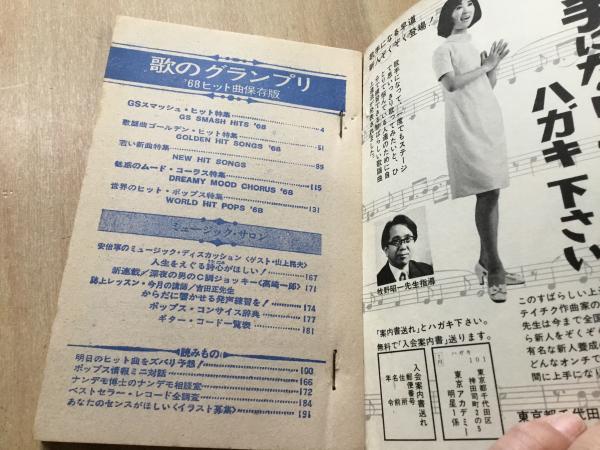 歌のグランプリ
'68ヒット曲保存版
GSスマッシュ・ヒット特集
GS SMASH HITS '68 4
歌謡曲ゴールデン・ヒット特集
GOLDEN HIT SONGS '68 51
若い新曲特集
NEW HIT SONGS 89
魅惑のムード・コーラス特集
DREAMY MOOD CHORUS '68 115
世界のヒット・ポップス特集
WORLD HIT POPS '68 131
ミュージック・サロン
安倍寧のミュージック・ディスカッション〈ゲスト・山上路夫〉
人生をえぐる詩心がほしい! 167
新連載/深夜の男のC調ジョッキー〈高崎一郎〉 171
誌上レッスン・今月の講師/吉田正先生
からだに響かせる発声練習を! 174
ポップス・コンサイス辞典 177
ギター・コード一覧表 181
読みもの
明日のヒット曲をズバリ予想! 100
ポップス情報ミニ対話 166
ナンデモ博士のナンデモ相談室 172
ベストセラー・レコード全調査 184
あなたのセンスがほしい〈イラスト募集〉 191
歌手になる早道
新人ぞくぞく登場!
歌手になって、一度でもステージ
で思いっきり歌ってみたいと、ひ
とりで悩んでいる人達のために自
ハガキ下さい
牧野昭一先生指導
「案内書送れ」とハガキ下さい。
無料で「入会案内書」送ります。
ハガキ
101
東京都千代田区
神田司町2の5
東京アカデミー
明星1係
入会案内書送れ
郵便番号
住所
名前
年令
このすばらしい上
テイチク作曲家の
先生は今まで全国
ら新人をぞくぞく
有名な新人養成
どんなオンチで
間に上手になり
東京都千代田